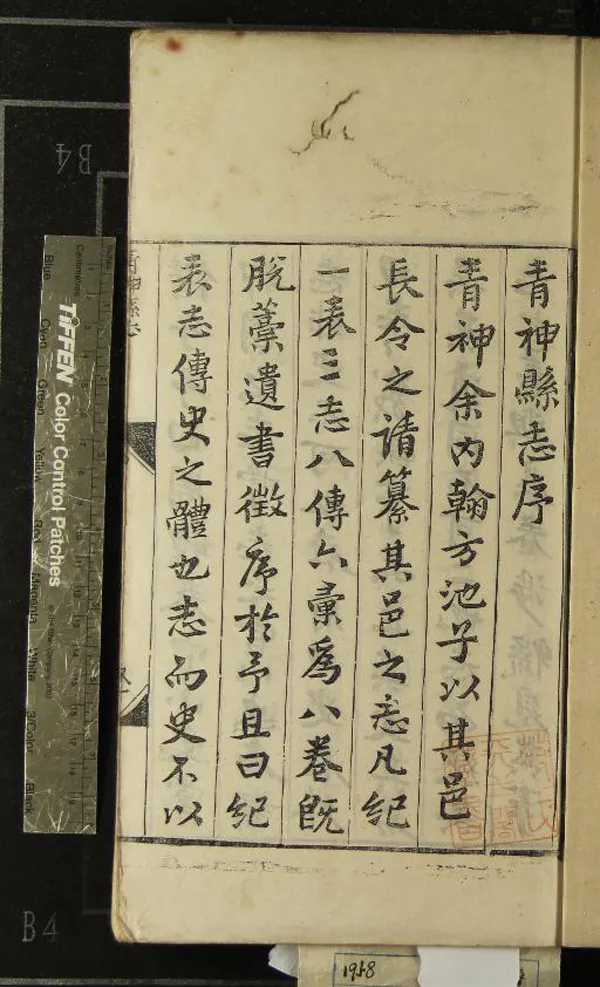 青神縣志序
青神余内翰方池子以其邑
長令之請纂其邑之志凡紀
一表三志八傳六彙爲八卷旣
脫藳遺書徵序於予且曰紀
表志傳史之體也志而史不以
青神縣志
B4
B4
TIFFEN Color Control Patches
Centimetres
Blue
Cyan
Green
Yellow
Red
Magenta
White
3/Color
Black
1958